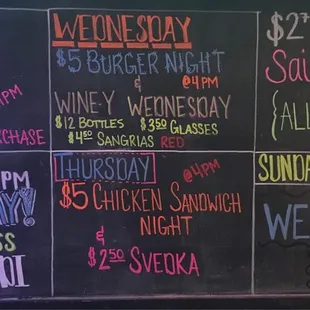 WEDNESDAY
$5 BURGER NIGHT
& @4PM
WINE-Y WEDNESDAY
$12 BOTTLES $3.50 GLASSES
$4.50 SANGRIAS RED
THURSDAY
@4PM
$5 CHICKEN SANDWICH
NIGHT
&
$2.50 SVEDKA
PM
PM
$2
{ALL
SUNDA
WE